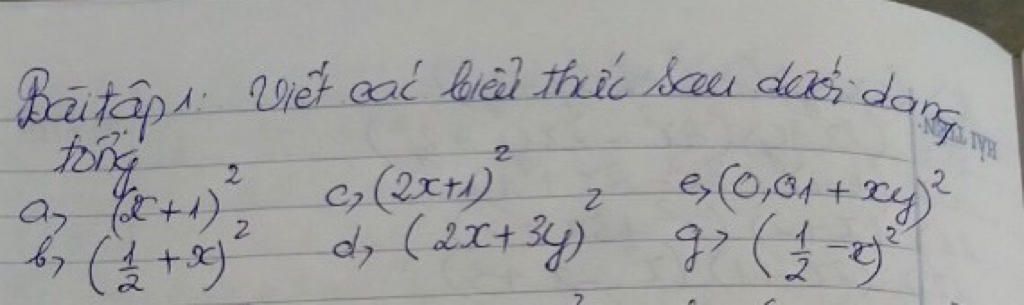 Bài tập 1: Viết các biểu thức sau dưới dạng
tổng
a, (x+1)² c, (2x+1)² e, (0,01 + xy)²
b, (1/2 + x)² d, (2x + 3y)² g, (1/2 - x)²